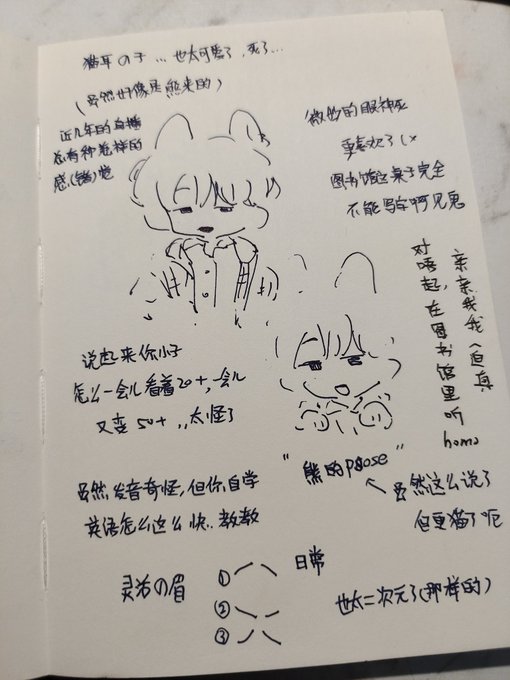 猫耳の子 ... 也太可爱了,死了...
(虽然好像是熊来的)
近几年的直播
总有种怎样的
感(错)觉
微妙的眼神死
喜欢了(x
图书馆这桌子完全
不能写字啊见鬼
亲亲我我(迫真
对唔起,在图书馆里听homo
说起来你小子
怎么一会儿看着20+,一会儿
又变50+ ,,太怪了
"熊的pose"
虽然这么说了
但更猫了呃
虽然发音奇怪,但你自学
英语怎么这么快..教教
灵活の眉
① 日常
②
③
也太二次元了(那样的)